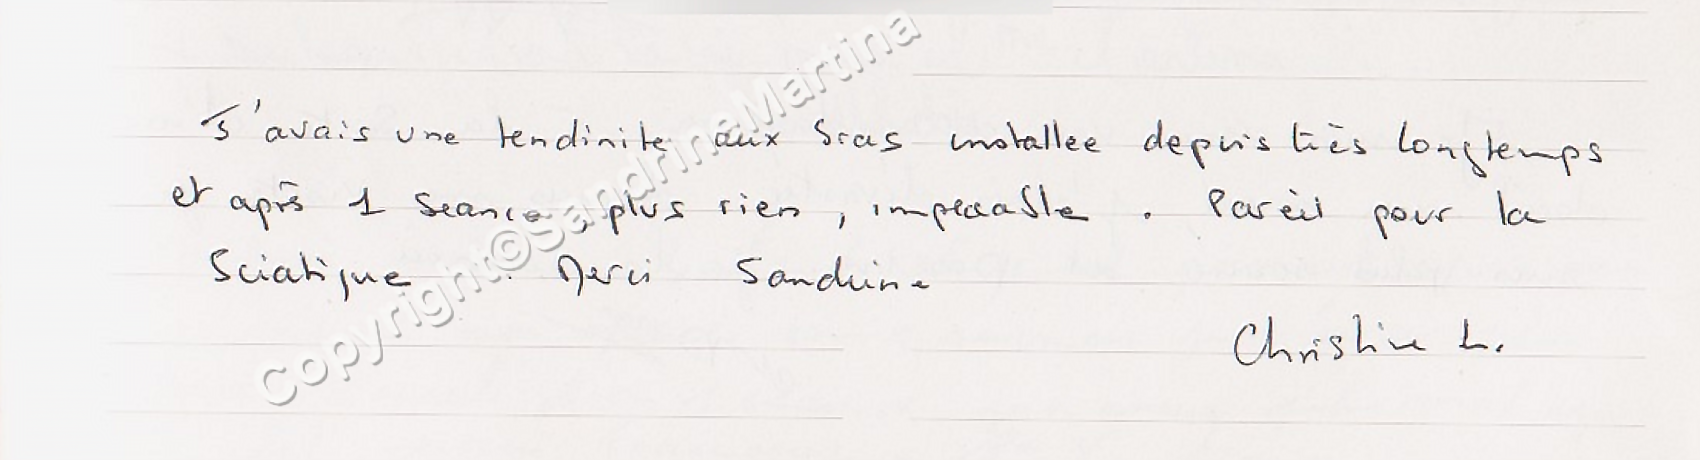 J'avais une tendinite aux bras installée depuis très longtemps
et après 1 séance, plus rien, impeccable. Pareil pour la
Sciatique. Merci Sandrine
Christine L.
Copyright©SandrineMartina